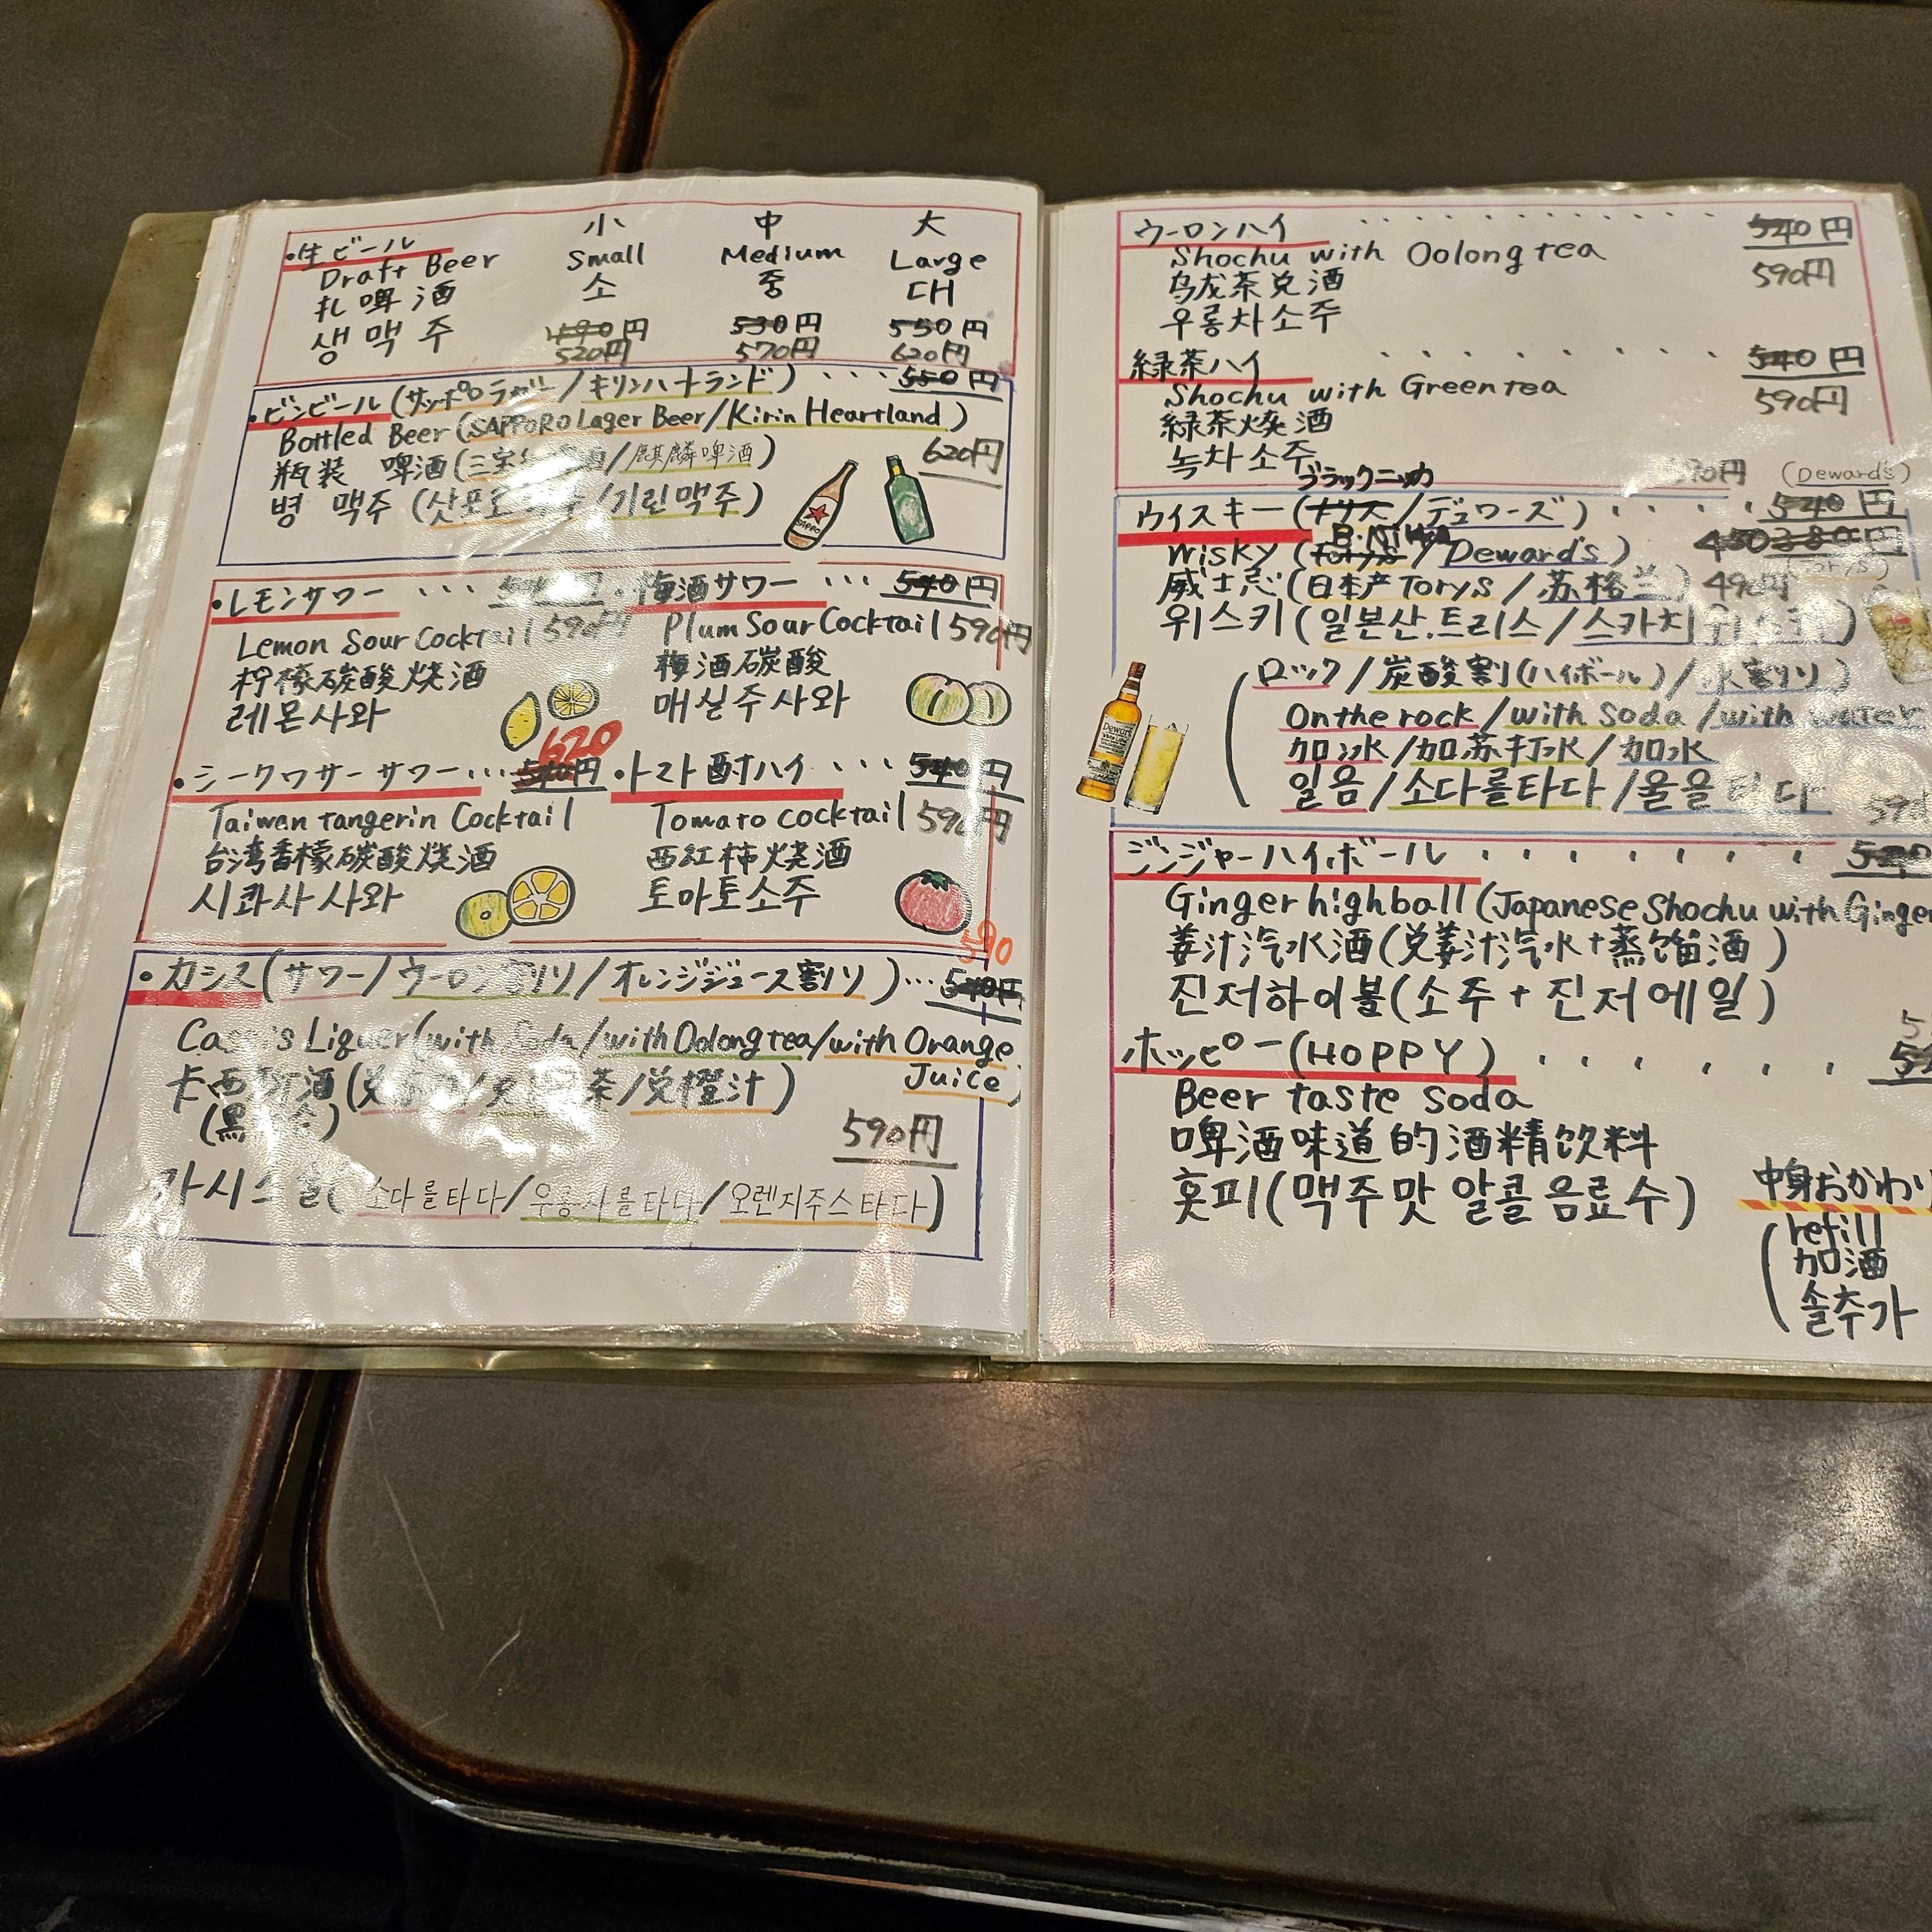 小 中 大
・生ビール
Draft Beer Small Medium Large
扎啤酒 소 중 대
생맥주 490円 530円 550円
520円 570円 620円
・ビンビール(サッポロラガー/キリンハートランド)・・・550円
Bottled Beer (SAPPORO Lager Beer/Kirin Heartland)
620円
瓶装 啤酒(三宝 /麒麟啤酒)
병 맥주 (삿포로 /기린맥주)
SAPPORO
・レモンサワー ・・・
Lemon Sour Cocktail 590円
柠檬碳酸烧酒
레몬사와
・梅酒サワー ・・・ 540円
Plum Sour Cocktail 590円
梅酒碳酸
매실주사와
620
・シークワサーサワー・・・540円
Taiwan tangerin Cocktail
台湾香檬碳酸烧酒
시콰사사와
・トマト酎ハイ ・・・ 540円
Tomato cocktail 590円
西紅柿烧酒
토마토소주
590
・カシス(サワー/ウーロン割り/オレンジジュース割り)・・・540円
Cassis Liquer(with Soda/with Oolong tea/with Orange
Juice)
卡西 酒(兑 / 茶/兑橙汁)
(黑 )
590円
(소다를타다/우롱차를타다/오렌지주스타다)
ウーロンハイ ・・・・・・・・・・・・ 540円
Shochu with Oolong tea
590円
乌龙茶兑酒
우롱차소주
緑茶ハイ ・・・・・・・・・ 540円
Shochu with Green tea
590円
緑茶烧酒
녹차소주
ブラックニッカ 590円 (Deward's)
ウイスキー(トリス/デュワーズ)・・・・540円
B.Nikka
Wisky (Torys/Deward's) 450 380円
(Torys)
威士忌(日本产Torys/苏格兰) 490円
위스키(일본산.트리스/스카치위스키)
(ロック/炭酸割(ハイボール)/水割り)
On the rock/with Soda/with water
加冰/加苏打水/加水
일음/소다를타다/올을타다
590
ジンジャーハイボール ・・・・・・・
Ginger highball (Japanese Shochu with Ginger
姜汁汽水酒(兑姜汁汽水+蒸馏酒)
진저하이볼(소주+진저에일)
ホッピー(HOPPY)・・・・・・
Beer taste soda
啤酒味道的酒精饮料
홋피(맥주맛 알콜음료수)
中身おかわり
(refill
加酒
술추가